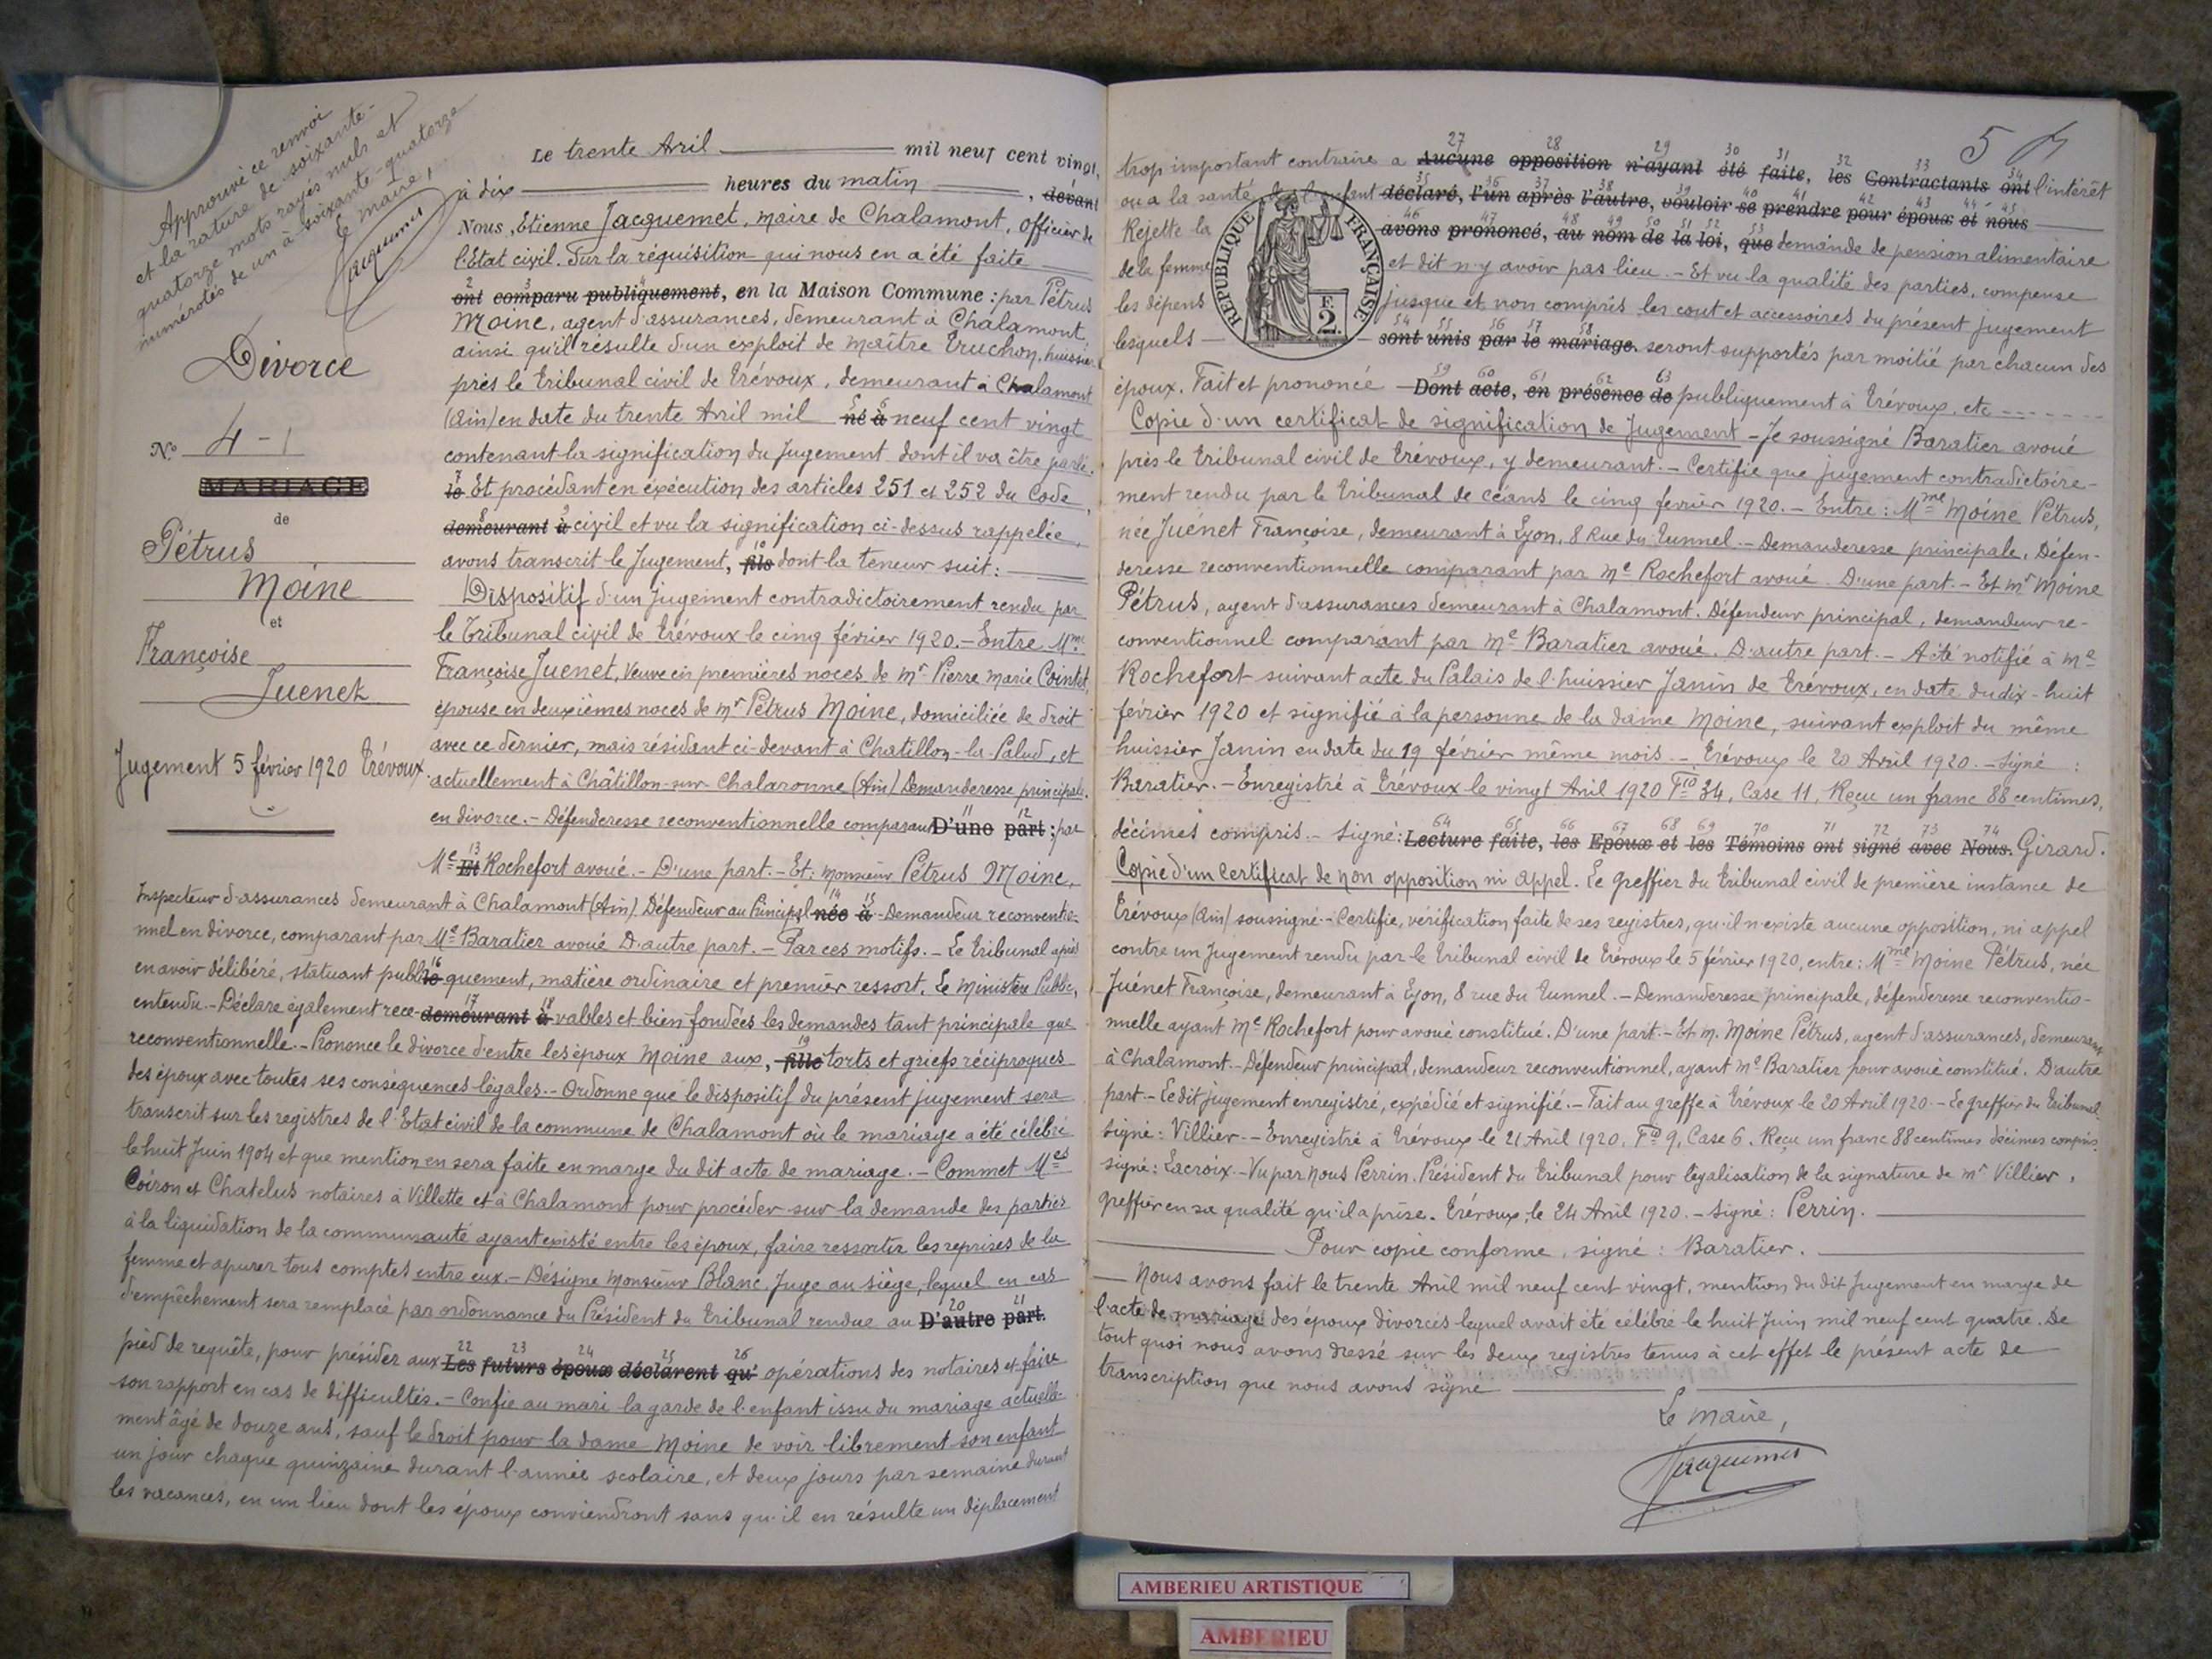 Approuvé ce renvoi
et la rature de soixante-
quatorze mots rayés nuls et
numérotés de un à soixante-quatorze
Le maire,
Jacquemet
Divorce
N.° 4-1
MARIAGE
de
Pétrus
Moine
et
Françoise
Juenet
Jugement 5 février 1920 Trévoux.
Le trente Avril mil neuf cent vingt,
à dix heures du matin, devant
Nous, Etienne Jacquemet, maire de Chalamont, officier de
l'Etat civil. Sur la réquisition qui nous en a été faite
2 3 4
ont comparu publiquement, en la Maison Commune : par Pétrus
Moine, agent d'assurances, demeurant à Chalamont,
ainsi qu'il résulte d'un exploit de maître Truchon, huissier
près le Tribunal civil de Trévoux, demeurant à Chalamont
5 6
(Ain) en date du trente Avril mil né à neuf cent vingt
contenant la signification du Jugement dont il va être parlé.
7
le Et procédant en exécution des articles 251 et 252 du Code
8 9
demeurant à civil et vu la signification ci-dessus rappelée,
10
avons transcrit le Jugement, fils dont la teneur suit :
Dispositif d'un jugement contradictoirement rendu par
le Tribunal civil de Trévoux le cinq février 1920. – Entre Mme
Françoise Juenet, Veuve en premières noces de Mr Pierre Marie Cointet,
épouse en deuxièmes noces de Mr Pétrus Moine, domiciliée de droit
avec ce dernier, mais résidant ci-devant à Chatillon-la-Palud, et
actuellement à Châtillon-sur-Chalaronne (Ain) Demanderesse principale
11 12
en divorce. – Défenderesse reconventionnelle comparant D'une part ; par
13
Me Et Rochefort avoué. – D'une part. – Et : Monsieur Pétrus Moine,
14 15
Inspecteur d'assurances demeurant à Chalamont (Ain) Défendeur au Principal née à - Demandeur reconventio-
nnel en divorce, comparant par Me Baratier avoué D'autre part. – Par ces motifs. – Le Tribunal après
16
en avoir délibéré, statuant publi le quement, matière ordinaire et premier ressort. Le Ministère Public,
17 18
entendu. – Déclare également rece- demeurant à vables et bien fondées les demandes tant principale que
19
reconventionnelle. – Prononce le divorce d'entre les époux Moine aux, fille torts et griefs réciproques
des époux avec toutes ses conséquences légales. – Ordonne que le dispositif du présent jugement sera
transcrit sur les registres de l'Etat civil de la commune de Chalamont où le mariage a été célébré
le huit Juin 1904 et que mention en sera faite en marge du dit acte de mariage. – Commet Mes
Coiron et Chatelus notaires à Villette et à Chalamont pour procéder sur la demande des parties
à la liquidation de la communauté ayant existé entre les époux, faire ressortir les reprises de la
femme et apurer tous comptes entre eux. – Désigne Monsieur Blanc, Juge au siège, lequel en cas
20 21
d'empêchement sera remplacé par ordonnance du Président du Tribunal rendue au D'autre part.
22 23 24 25 26
pied de requête, pour présider aux Les futurs époux déclarent qu' opérations des notaires et faire
son rapport en cas de difficultés. – Confie au mari la garde de l'enfant issu du mariage actuelle-
ment âgé de douze ans, sauf le droit pour la dame Moine de voir librement son enfant
un jour chaque quinzaine durant l'année scolaire, et deux jours par semaine durant
les vacances, en un lieu dont les époux conviendront sans qu'il en résulte un déplacement
5
27 28 29 30 31 32 33 34
trop important contraire a Aucune opposition n'ayant été faite, les Contractants ont l'intérêt
35 36 37 38 39 40 41 42 43 44 45
ou a la santé de l'enfant déclaré, l'un après l'autre, vouloir se prendre pour époux et nous
46 47 48 49 50 51 52 53
Rejette la avons prononcé, au nom de la loi, que demande de pension alimentaire
de la femme et dit n'y avoir pas lieu. – Et vu la qualité des parties, compense
les dépens jusque et non compris les cout et accessoires du présent jugement
54 55 56 57 58
lesquels – sont unis par le mariage. seront supportés par moitié par chacun des
RÉPUBLIQUE FRANÇAISE
F.
2.
59 60 61 62 63
époux. Fait et prononcé – Dont acte, en présence de publiquement à Trévoux, etc
Copie d'un certificat de signification de Jugement – Je soussigné Baratier avoué
près le Tribunal civil de Trévoux, y demeurant. – Certifie que jugement contradictoire-
ment rendu par le Tribunal de céans le cinq fevrier 1920. – Entre : Mme Moine Pétrus,
née Juénet Françoise, demeurant à Lyon, 8 Rue du Tunnel – Demanderesse principale, Défen-
deresse reconventionnelle comparant par Me Rochefort avoué D'une part. – Et Mr Moine
Pétrus, agent d'assurances demeurant à Chalamont. Défendeur principal, demandeur re-
conventionnel comparant par Me Baratier avoué. D'autre part. – A été notifié à Me
Rochefort suivant acte du Palais de l'huissier Janin de Trévoux, en date du dix-huit
février 1920 et signifié à la personne de la dame Moine, suivant exploit du même
huissier Janin en date du 19 février même mois – Trévoux le 20 Avril 1920. – Signé :
Baratier. – Enregistré à Trévoux le vingt Avril 1920 Fio 34, Case 11, Reçu un franc 88 centimes,
64 65 66 67 68 69 70 71 72 73 74
décimes compris. – Signé : Lecture faite, les Epoux et les Témoins ont signé avec Nous. Girard.
Copie d'un Certificat de non opposition ni appel. Le greffier du Tribunal civil de première instance de
Trévoux (Ain) soussigné – Certifie, vérification faite de ses registres, qu'il n'existe aucune opposition, ni appel
contre un Jugement rendu par le Tribunal civil de Trévoux le 5 février 1920, entre : Mme Moine Pétrus, née
Juénet Françoise, demeurant à Lyon, 8 rue du Tunnel. – Demanderesse principale, défenderesse reconventio-
nnelle ayant Me Rochefort pour avoué constitué. D'une part. – Et M. Moine Pétrus, agent d'assurances, demeurant
à Chalamont. – Défendeur principal, demandeur reconventionnel, ayant Me Baratier pour avoué constitué. D'autre
part. – Ledit jugement enregistré, expédié et signifié. – Fait au greffe à Trévoux le 20 Avril 1920 – Le greffier du Tribunal
signé : Villier. – Enregistré à Trévoux le 21 Avril 1920. Fo 9, Case 6. Reçu un franc 88 centimes décimes compris.
signé : Lacroix. – Vu par Nous Perrin. Président du Tribunal pour légalisation de la signature de Mr Villier,
greffier en sa qualité qu'il a prise. Trévoux, le 24 Avril 1920. – Signé : Perrin.
Pour copie conforme, signé : Baratier.
Nous avons fait le trente Avril mil neuf cent vingt, mention du dit Jugement en marge de
l'acte de mariage des époux divorcés lequel avait été célébré le huit Juin mil neuf cent quatre. De
tout quoi nous avons dressé sur les deux registres tenus à cet effet le présent acte de
transcription que nous avons signé
Le Maire,
Jacquemet
AMBERIEU ARTISTIQUE
AMBERIEU